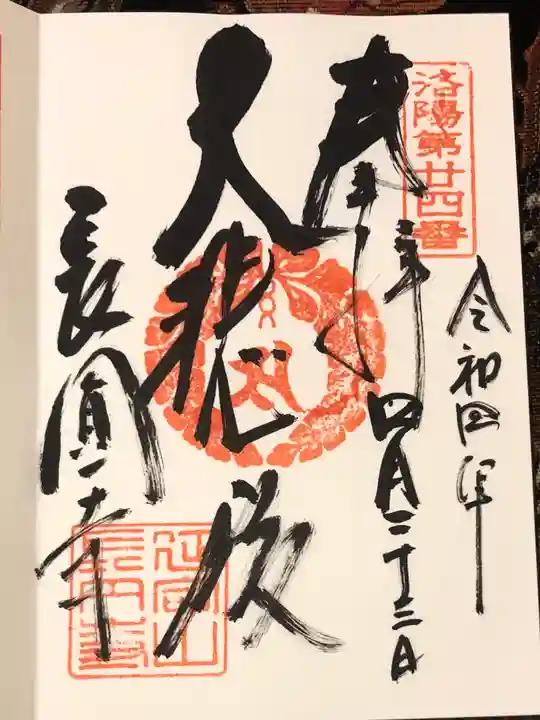 洛陽第廿四番
令和四年
奉拝
四月二十三日
大悲殿
長圓寺
延冨山
長円寺